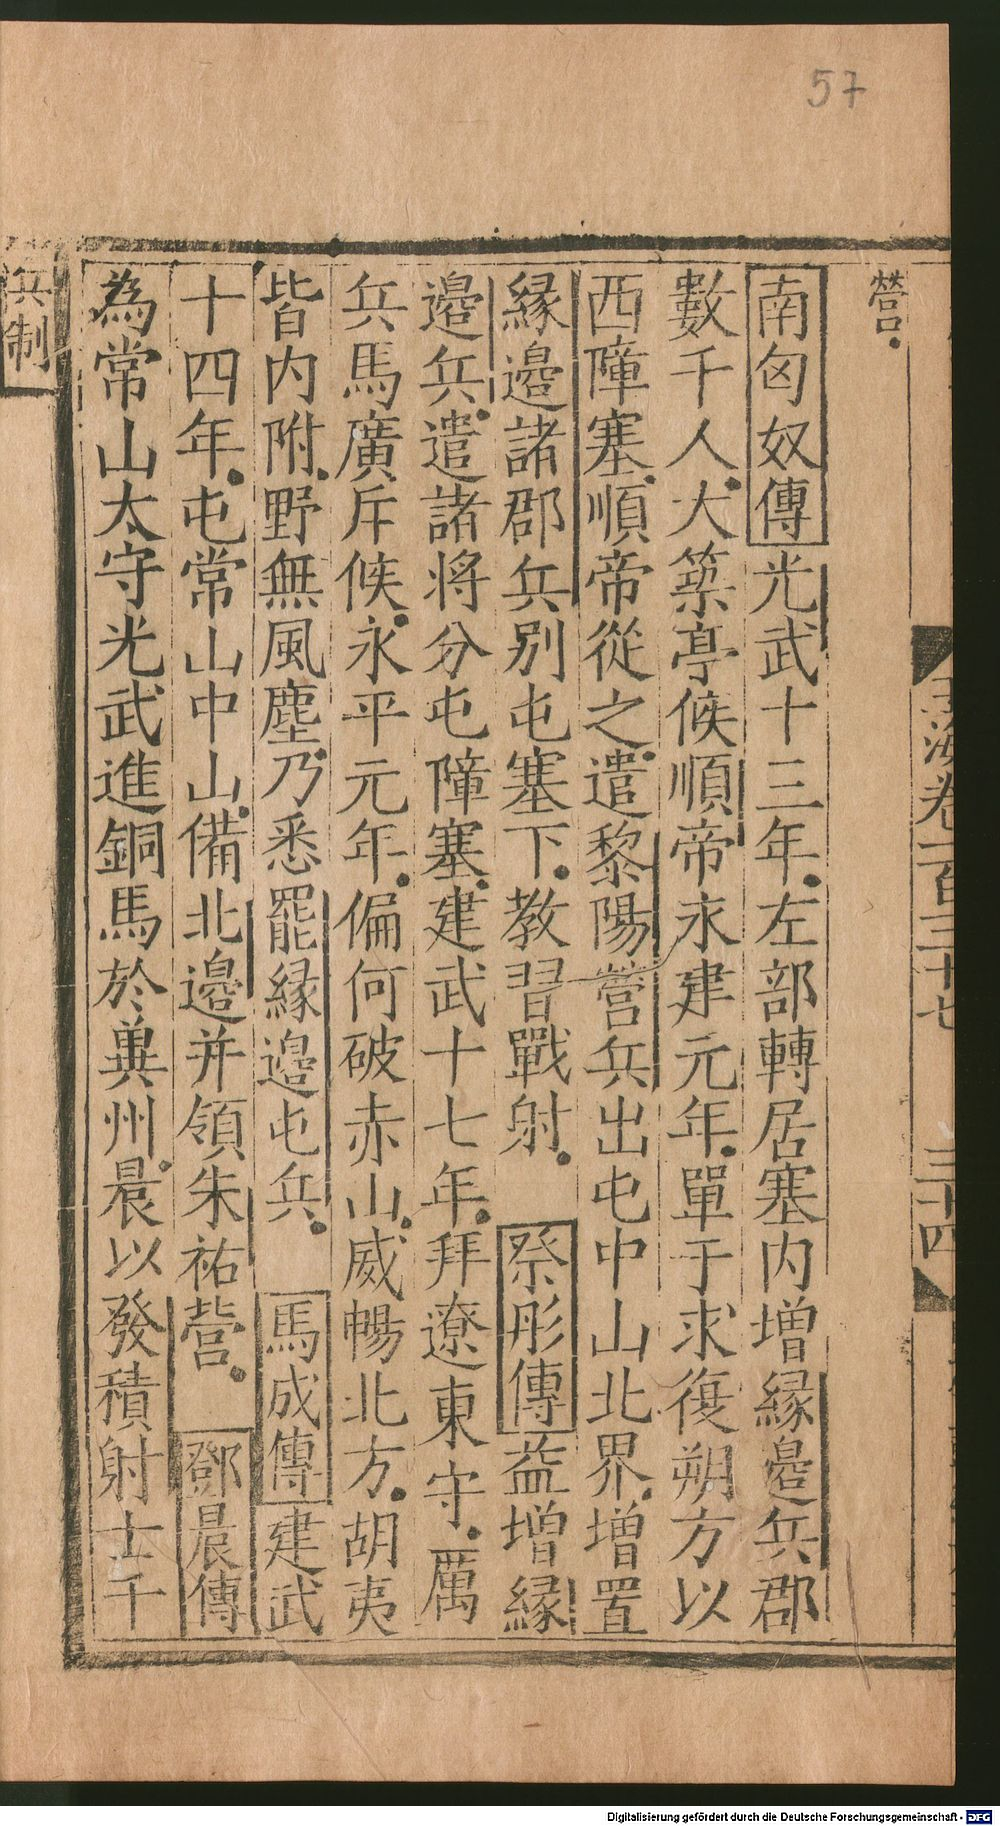 57
營
玉海卷一百三十七 三十四
南匈奴傳光武十三年左部轉居塞内增縁邊兵郡
數千人大築亭候順帝永建元年單于求復朔方以
西障塞順帝從之遣黎陽營兵出屯中山北界增置
縁邊諸郡兵别屯塞下教習戰射 祭肜傳益增縁
邊兵遣諸將分屯障塞建武十七年拜遼東守厲
兵馬廣斥候永平元年偏何破赤山威暢北方胡夷
皆内附野無風塵乃悉罷縁邊屯兵 馬成傳建武
十四年屯常山中山備北邊并領朱祐營 鄧晨傳
為常山太守光武進銅馬於兾州晨以發積射士千
兵制
Digitalisierung gefördert durch die Deutsche Forschungsgemeinschaft - DFG